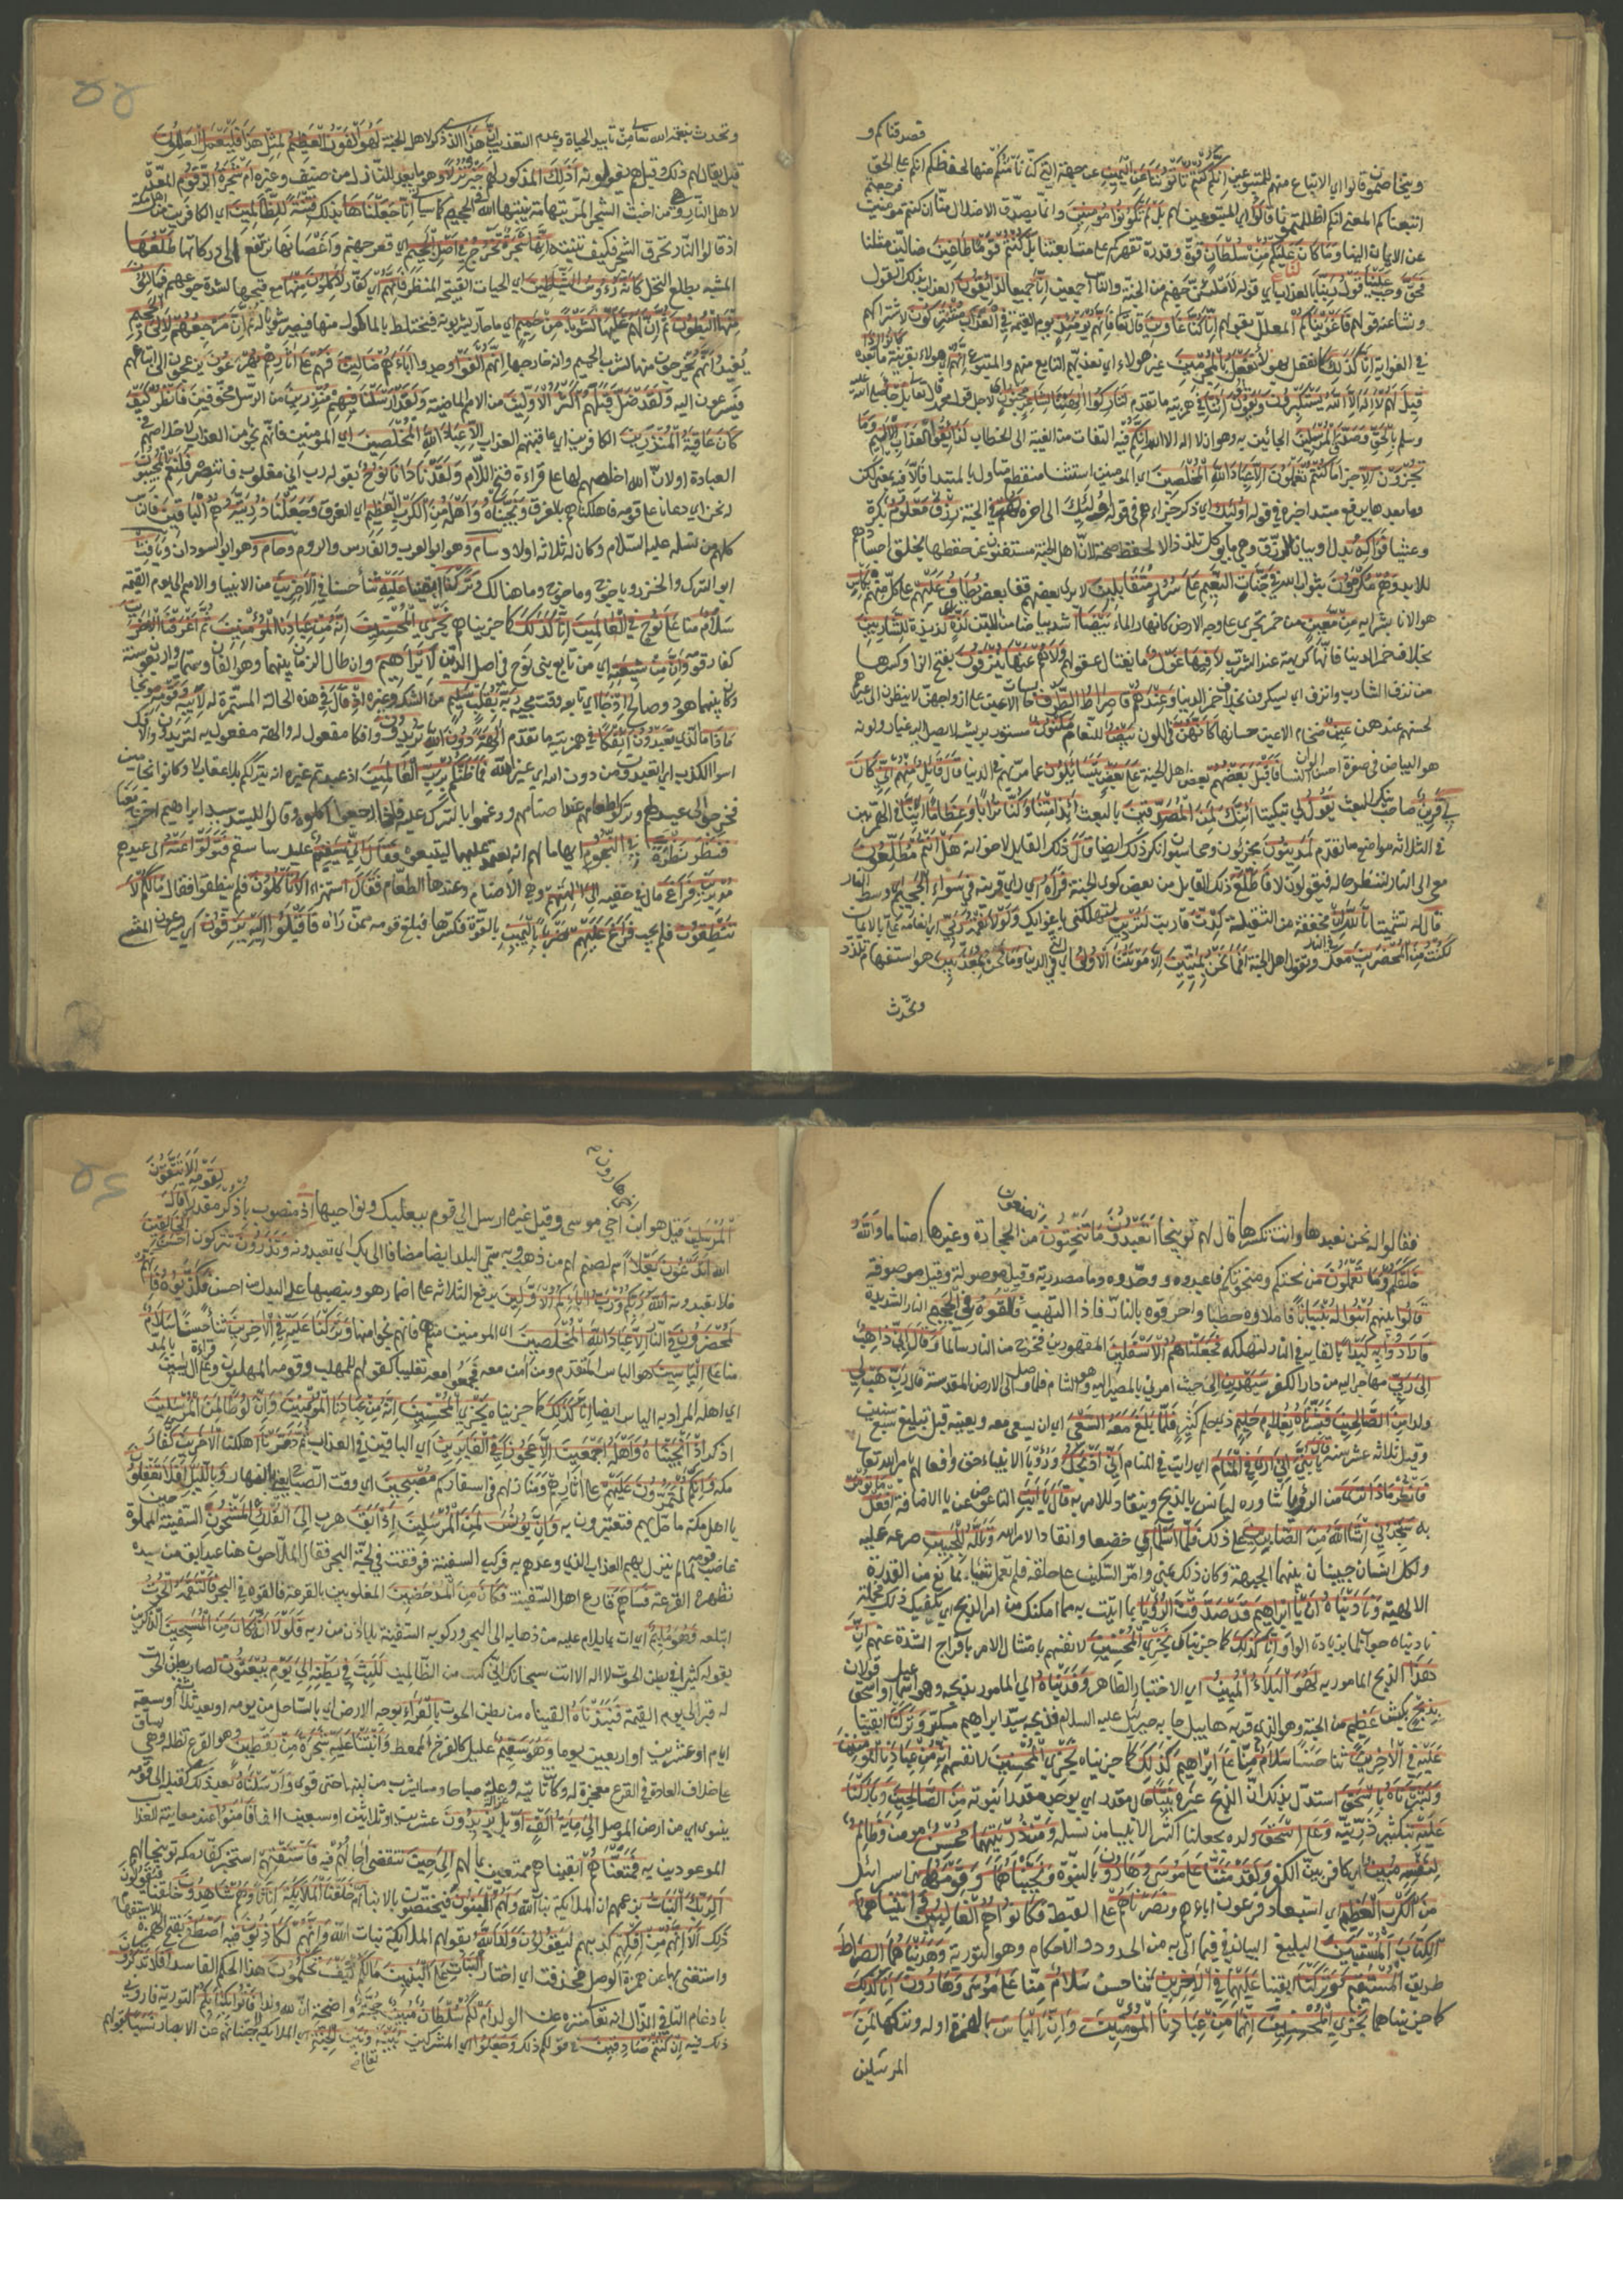 فصدقناكم و
ويتخاصمون قالوا اي الاتباع منهم للمتبوعين انكم كنتم تأتوننا عن اليمين عن جهة التي كنا نأمنكم منها لحلفكم انكم على الحق
اتبعناكم المعنى انكم اضللتمونا قالوا اي المتبوعين لهم بل لم تكونوا مؤمنين وانما يصدق الاضلال منا ان كنتم مومنين فرجعتم
عن الايمان الينا وما كان لنا عليكم من سلطان قوة وقدرة تقهركم على متابعتنا بل كنتم قوما طاغين ضالين مثلنا
فحق وجب علينا قول ربنا بالعذاب اي قوله لاملئن جهنم من الجنة والناس اجمعين انا جميعا لذائقون العذاب بذلك القول
ونشا عنه قولهم فاغويناكم المعلل بقولهم انا كنا غاوين قال تعالى فانهم يومئذ يوم القيمة في العذاب مشتركون لاشتراكهم
في الغواية انا كذلك كما نفعل بهولاء نفعل بالمجرمين غير هولاء اي نعذبهم التابع منهم والمتبوع انهم اي هولاء بقرينة ما بعده كانوا اذا
قيل لهم لا اله الا الله يستكبرون ويقولون ائنا في همزتيه ما تقدم لتاركوا الهتنا لشاعر مجنون اي لاجل قول محمد قال تعالى بل جا صلى الله
وسلم بالحق وصدق المرسلين الجائين به وهو ان لا اله الا الله انكم فيه التفات من الغيبة الى الخطاب لذائقوا العذاب الاليم وما
تجزون الا جزا ما كنتم تعملون الا عباد الله المخلصين اي المومنين استثنا منقطع
وعشيا فواكه بدل او بيان للرزق وهي ما يوكل تلذذا لا لحفظ صحة لان اهل الجنة مستغنون عن حفظها بخلق اجسادهم
للابد وهم مكرمون بثواب الله في جنات النعيم على سرر متقابلين لا يرى بعضهم قفا بعض يطاف عليهم على كل منهم بكاس
هو الانا بشرابه من معين من خمر تجري على وجه الارض كانهار الماء بيضا اشد بياضا من اللبن لذة لذيذة للشاربين
بخلاف خمر الدنيا فانها كريهة عند الشرب لا فيها غول ما يغتال عقولهم ولا هم عنها ينزفون بفتح الزا وكسرها
من نزف الشارب وانزف اي يسكرون بخلاف خمر الدنيا وعندهم قاصرات الطرف حابسات الاعين على ازواجهن لا ينظرن الى غيرهم
لحسنهم عندهن عين ضخام الاعين حسانها كانهن في اللون بيض للنعام مكنون مستور بريشه لا يصل اليه غبار ولونه
هو البياض في صفرة احسن الوان النسا فاقبل بعضهم بعض اهل الجنة على بعض يتسائلون عما مر بهم في الدنيا قال قائل منهم اني كان
لي قرين صاحب ينكر البعث يقول لي تبكيتا ائنك لمن المصدقين بالبعث ائذا متنا وكنا ترابا وعظاما ائنا في الهمزتين
في الثلاثة مواضع ما تقدم لمدينون مجزيون ومحاسبون انكر ذلك ايضا قال ذلك القايل لاخوانه هل انتم مطلعون
معي الى النار لننظر حاله فيقولون لا فاطلع ذلك القايل من بعض كوى الجنة فرآه اي راى قرينه في سواء الجحيم اي وسط النار
قال له تشميتا تالله ان مخففة من الثقيلة كدت قاربت لتردين لتهلكني باغوايك ولولا نعمة ربي اي انعامه علي بالايمان
لكنت من المحضرين معك في النار ويقول اهل الجنة افما نحن بميتين الا موتتنا الاولى اي التي في الدنيا وما نحن بمعذبين هو استفهام تلذذ
وتحدث
وتحدث بنعمة الله تعالى من تابيد الحياة وعدم التعذيب ان هذا الذي ذكر لاهل الجنة لهو الفوز العظيم لمثل هذا فليعمل العاملون
قيل يقال لهم ذلك وقيل هم يقولونه اذلك المذكور لهم خير نزلا وهو ما يعد للنازل من ضيف وغيره ام شجرة الزقوم المعدة
لاهل النار وهي من اخبث الشجر المر بتهامة ينبتها الله في الجحيم كما سياتي انا جعلناها بذلك فتنة للظالمين اي الكافرين من اهل مكة
اذ قالوا النار تحرق الشجر فكيف تنبته انها شجرة تخرج في اصل الجحيم اي قعر جهنم واغصانها ترتفع الى دركاتها طلعها
المشبه بطلع النخل كانه رؤوس الشياطين اي الحيات القبيحة المنظر فانهم اي الكفار لاكلون منها مع قبحها لشدة جوعهم فمالئون
منها البطون ثم ان لهم عليها لشوبا من حميم اي ماء حار يشربونه فيختلط بالماكول منها فيصير شوبا له ثم ان مرجعهم لالى الجحيم
يفيد انهم يخرجون منها لشرب الحميم وانه خارجها انهم الفوا وجدوا اباءهم ضالين فهم على اثارهم يهرعون يزعجون الى اتباعهم
فيسرعون اليه ولقد ضل قبلهم اكثر الاولين من الامم الماضية ولقد ارسلنا فيهم منذرين من الرسل مخوفين فانظر كيف
كان عاقبة المنذرين الكافرين اي عاقبتهم العذاب الا عباد الله المخلصين اي المومنين فانهم نجوا من العذاب لاخلاصهم في
العبادة او لان الله اخلصهم لها على قراءة فتح اللام ولقد نادانا نوح بقوله رب اني مغلوب فانتصر فلنعم المجيبون
له نحن اي دعانا على قومه فاهلكناهم بالغرق ونجيناه واهله من الكرب العظيم اي الغرق وجعلنا ذريته هم الباقين فالناس
كلهم من نسله عليه السلام وكان له ثلاثة اولاد سام وهو ابو العرب والفارس والروم وحام وهو ابو السودان ويافث
ابو الترك والخزر وياجوج وماجوج وما هنالك وتركنا ابقينا عليه ثناء حسنا في الاخرين من الانبيا والامم الى يوم القيمة
سلام منا على نوح في العالمين انا كذلك كما جزيناهم نجزي المحسنين انه من عبادنا المؤمنين ثم اغرقنا الاخرين
كفار قومه وان من شيعته اي من تابع بني نوح في اصل الدين لابراهيم وان طال الزمان بينهما وهو الفان وستمائة واربعون سنة
وكان بينهما هود وصالح اذ جا اي تابعه وقت مجيئه ربه بقلب سليم من الشك وغيره اذ قال في هذه الحالة المستمرة له لابيه وقومه موبخا
ماذا ما الذي تعبدون ائفكا في همزتيه ما تقدم الهة دون الله تريدون وافكا مفعول له والهة مفعول به لتريدون والافك
اسوا الكذب اي اتعبدون من دون الله اي غير الله فما ظنكم برب العالمين اذ عبدتم غيره انه يترككم بلا عقاب لا وكانوا نجامين
فخرجوا الى عيد لهم وتركوا طعامهم عند اصنامهم وقالوا للسيد ابراهيم اخرج معنا
فنظر نظرة في النجوم ايهاما لهم انه يعتمد عليها ليتبعوه فقال اني سقيم عليل ساسقم فتولوا عنه الى عيدهم
مدبرين فراغ مال في خفيه الى الهتهم وهي الاصنام وعندها الطعام فقال استهزاء الا تاكلون فلم ينطقوا فقال ما لكم لا
تنطقون فلم يجب فراغ عليهم ضربا باليمين بالقوة فكسرها فبلغ قومه ممن راه فاقبلوا اليه يزفون اي يسرعون المشي
فقالوا له نحن نعبدها وانت تكسرها قال لهم توبيخا اتعبدون ما تنحتون من الحجارة وغيرها اصناما والله
خلقكم وما تعملون من نحتكم ومنحوتكم فاعبدوه ووحدوه وما مصدرية وقيل موصولة وقيل موصوفة
قالوا بينهم ابنوا له بنيانا فاملاوه حطبا واحرقوه بالنار فاذا التهب فالقوه في الجحيم النار الشديدة
فارادوا به كيدا بالقايه في النار لتهلكه فجعلناهم الاسفلين المقهورين فخرج من النار سالما وقال اني ذاهب
الى ربي مهاجر اليه من دار الكفر سيهدين الى حيث امرني بالمصير اليه وهو الشام فلما وصل الى الارض المقدسة قال رب هب لي
ولدا من الصالحين فبشرناه بغلام حليم ذي حلم كثير فلما بلغ معه السعي اي ان يسعى معه ويعينه قيل بلغ سبع سنين
وقيل ثلاثة عشر سنة قال يا بني اني ارى في المنام اي رايت في المنام اني اذبحك ورؤيا الانبياء حق وافعالهم بامر الله تعالى
فانظر ماذا ترى من الرؤيا شاوره ليانس بالذبح وينقاد للامر به قال يا ابت التا عوض عن يا الاضافة افعل ما تومر
به ستجدني ان شا الله من الصابرين على ذلك فلما اسلما اي خضعا وانقادا لامر الله وتله للجبين صرعه عليه
ولكل انسان جبينان بينهما الجبهة وكان ذلك بمنى وامر السكين على حلقه فلم تعمل شيئا بمانع من القدرة
الالهية وناديناه ان يا ابراهيم قد صدقت الرؤيا بما اتيت به مما امكنك من امر الذبح اي يكفيك ذلك فجملة
ناديناه جواب لما بزيادة الواو انا كذلك كما جزيناك نجزي المحسنين لانفسهم بامتثال الامر بافراج الشدة عنهم ان
هذا الذبح المامور به لهو البلاء المبين اي الاختبار الظاهر وفديناه اي المامور بذبحه وهو اسماعيل او اسحق قولان
بذبح بكبش عظيم من الجنة وهو الذي قربه هابيل جا به جبريل عليه السلام فذبحه السيد ابراهيم مكبرا وتركنا ابقينا
عليه في الاخرين ثنا حسنا سلام منا على ابراهيم كذلك كما جزيناه نجزي المحسنين لانفسهم انه من عبادنا المؤمنين
وبشرناه باسحق استدل بذلك ان الذبيح غيره نبيا حال مقدرة اي يوجد مقدرا نبوته من الصالحين وباركنا
عليه بتكثير ذريته وعلى اسحق ولده بجعلنا اكثر الانبيا من نسله ومن ذريتهما محسن مومن وظالم
لنفسه مبين كافر بين الكفر ولقد مننا على موسى وهارون بالنبوة ونجيناهما وقومهما بني اسرائيل
من الكرب العظيم اي استعباد فرعون اياهم ونصرناهم على القبط فكانوا هم الغالبين واتيناهما
الكتاب المستبين البليغ البيان فيما اتى به من الحدود والاحكام وهو التورية وهديناهما الصراط
طريق المستقيم وتركنا ابقينا عليهما في الاخرين ثنا حسن سلام منا على موسى وهارون انا كذلك
كما جزيناهما نجزي المحسنين انهما من عبادنا المؤمنين وان الياس بالهمزة اوله وتركها لمن
المرسلين
المرسلين قيل هو ابن اخي هارون اخي موسى وقيل غيره ارسل الى قوم ببعلبك ونواحيها اذ منصوب باذكر مقدرا قال لقومه الا تتقون
الله اتدعون بعلا اسم لصنم لهم من ذهب وبه سمي البلد ايضا مضافا الى بك اي تعبدونه وتذرون تتركون احسن الخالقين
فلا تعبدونه الله ربكم ورب ابائكم الاولين برفع الثلاثة على اضمار هو وبنصبها على البدل من احسن فكذبوه فانهم
لمحضرون في النار الا عباد الله المخلصين اي المومنين منهم فانهم نجوا منها وتركنا عليه في الاخرين ثناء حسنا سلام
منا على الياسين هو الياس المتقدم ومن آمن معه فجمعوا معه تغليبا كقولهم للمهلب وقومه المهلبون وعلى قراءة آل ياسين بالمد
اي اهله المراد به الياس ايضا انا كذلك كما جزيناه نجزي المحسنين انه من عبادنا المؤمنين وان لوطا لمن المرسلين
اذكر اذ نجيناه واهله اجمعين الا عجوزا في الغابرين اي الباقين في العذاب ثم دمرنا اهلكنا الاخرين كفار
مكة وانكم لتمرون عليهم على اثارهم ومنازلهم في اسفاركم مصبحين اي وقت الصباح يعني بالنهار وبالليل افلا تعقلون
يا اهل مكة ما حل بهم فتعتبرون به وان يونس لمن المرسلين اذ ابق هرب الى الفلك المشحون السفينة المملوة حين
غاضب قومه لما لم ينزل بهم العذاب الذي وعدهم به فركب السفينة فوقفت في لجة البحر فقال الملاحون هنا عبد ابق من سيده
تظهره القرعة فساهم قارع اهل السفينة فكان من المدحضين المغلوبين بالقرعة فالقوه في البحر فالتقمه الحوت
ابتلعه وهو مليم اي ات بما يلام عليه من ذهابه الى البحر وركوبه السفينة بلا اذن من ربه فلولا انه كان من المسبحين الذاكرين
بقوله كثيرا في بطن الحوت لا اله الا انت سبحانك اني كنت من الظالمين للبث في بطنه الى يوم يبعثون لصار بطن الحوت
له قبرا الى يوم القيمة فنبذناه القيناه من بطن الحوت بالعراء بوجه الارض اي بالساحل من يومه او بعد ثلاثة او سبعة
ايام او عشرين او اربعين يوما وهو سقيم عليل كالفرخ الممعط وانبتنا عليه شجرة من يقطين وهو القرع تظله وهي بساق
على خلاف العادة في القرع معجزة له وكانت تاتيه وعلة صباحا ومسا يشرب من لبنها حتى قوي وارسلناه بعد ذلك كقبله الى قومه
بنينوى من ارض الموصل الى مائة الف او بل يزيدون عشرين او ثلاثين او سبعين الفا فآمنوا عند معاينة العذاب
الموعودين به فمتعناهم ابقيناهم ممتعين بمالهم الى حين تنقضي اجالهم فيه فاستفتهم استخبر كفار مكة توبيخا لهم
الربك البنات بزعمهم ان الملائكة بنات الله ولهم البنون فيختصون بالابنا ام خلقنا الملائكة اناثا وهم شاهدون خلقنا فيقولون
ذلك الا انهم من افكهم كذبهم ليقولون ولد الله بقولهم الملائكة بنات الله وانهم لكاذبون فيه اصطفى بفتح الهمزة للاستفهام
واستغني بها عن همزة الوصل فحذفت اي اختار البنات على البنين ما لكم كيف تحكمون هذا الحكم الفاسد افلا تذكرون
بادغام التا في الذال انه تعالى منزه عن الولد ام لكم سلطان مبين حجة واضحة ان لله ولدا فاتوا بكتابكم التورية فاروني
ذلك فيه ان كنتم صادقين في قولكم ذلك وجعلوا اي المشركين بينه وبين الجنة اي الملائكة لاجتنانهم عن الابصار نسبا بقولهم
تعالى